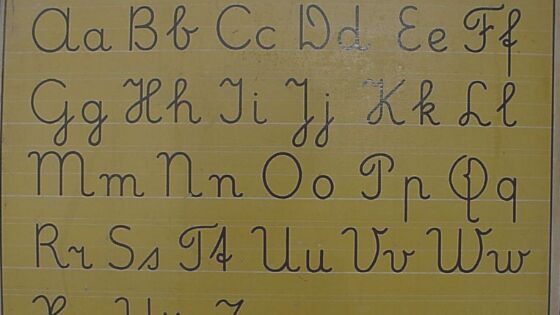 Aa Bb Cc Dd Ee Ff
Gg Hh Ii Jj Kk Ll
Mm Nn Oo Pp Qq
Rr Ss Tt Uu Vv Ww